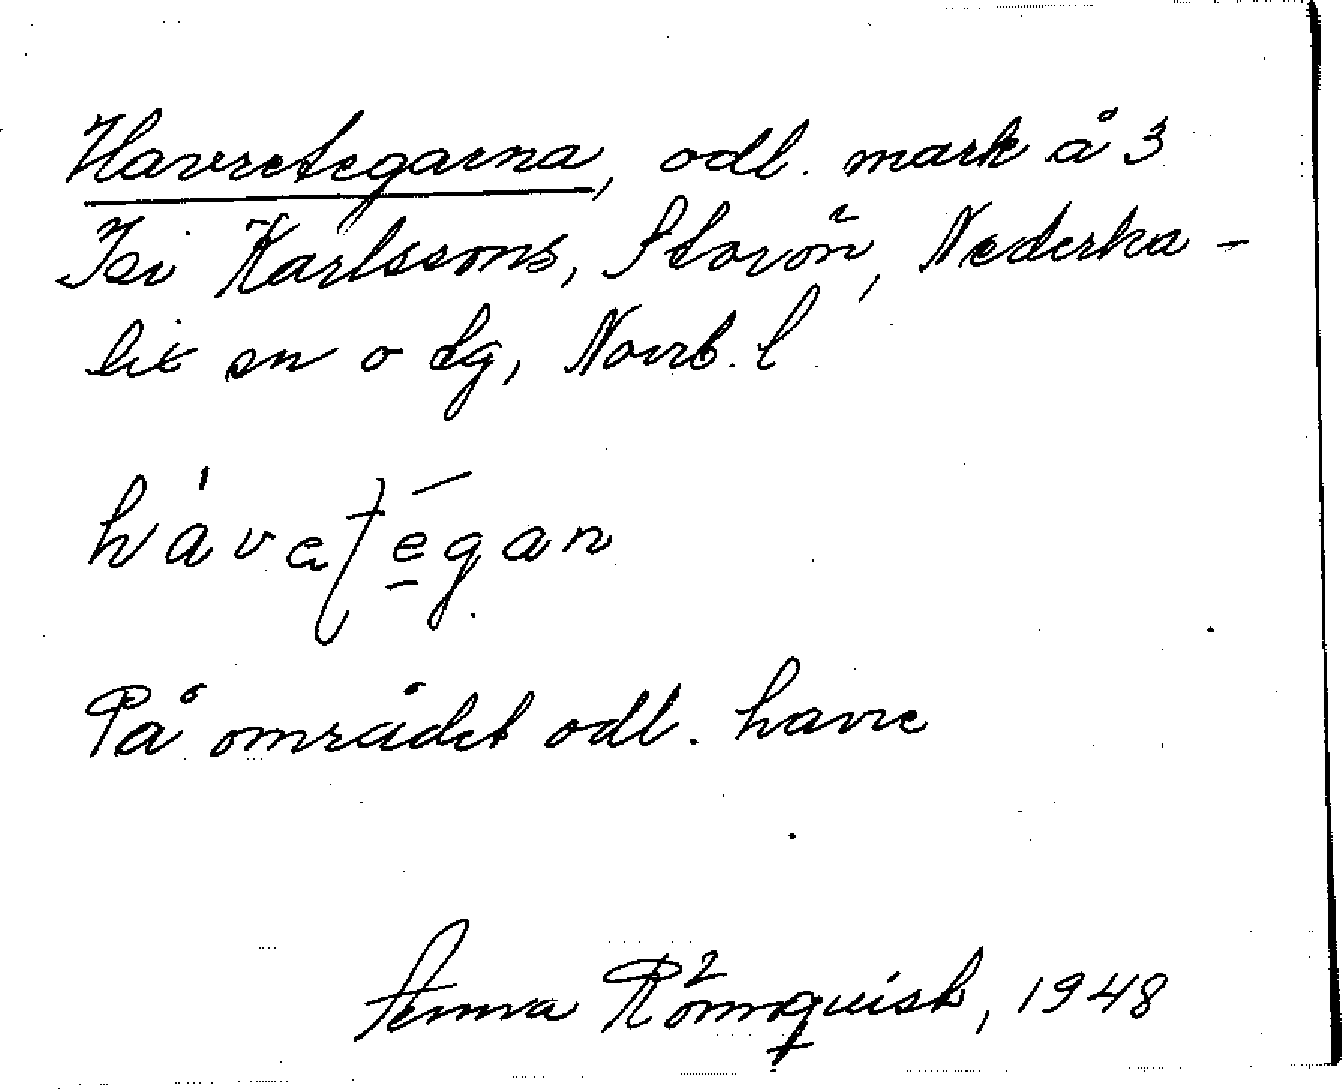 Havretegarna, odl. mark å 3
Isi Karlssons, Storön, Nederka-
lix sn o tg, Norrb. l
hávategan
På området odl. havre
Anna Römquist, 1948